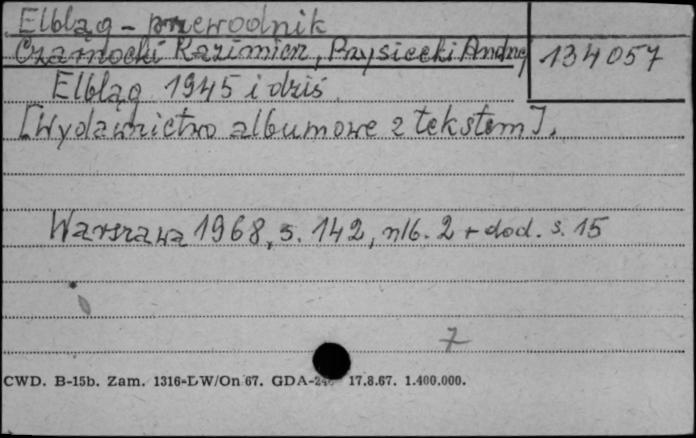 Elbląg - przewodnik
Czarnocki Kazimierz, Przysiecki Andrzej
134057
Elbląg 1945 i dziś.
[Wydawnictwo albumowe z tekstem].
Warszawa 1968, s. 142, nlb. 2 + dod. s. 15
7
CWD. B-15b. Zam. 1316-LW/On 67. GDA- 17.8.67. 1.400.000.